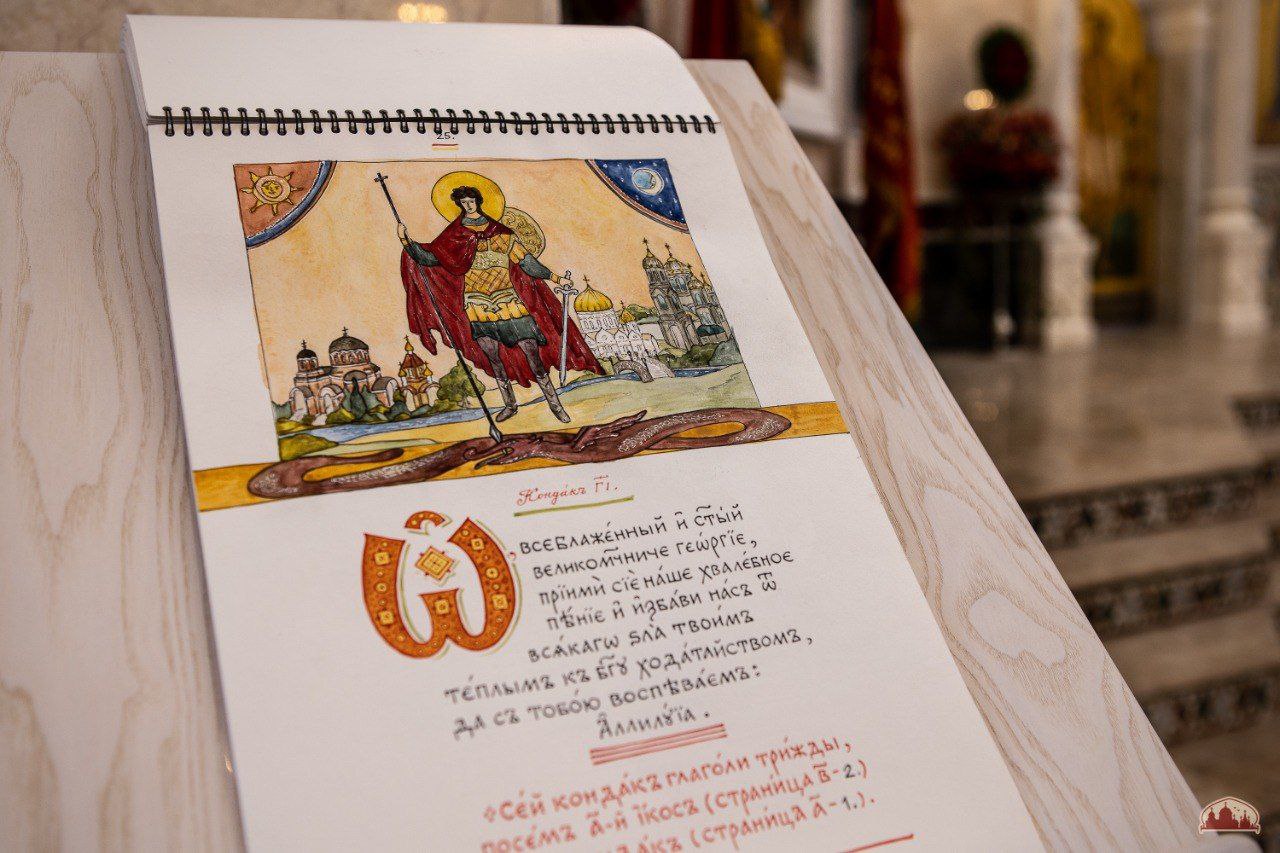 25.
Конда́къ г҃і.
Ѽ, всеблаже́нный и҆ ст҃ы́й
великомч҃ниче геѡ́ргїе,
прїимѝ сїѐ на́ше хвале́бное
пѣ́нїе и҆ и҆зба́ви на́съ ѿ
всѧ́кагѡ ѕла̀ твои́мъ
те́плымъ къ бг҃у хода́тайствомъ,
да съ тобо́ю воспѣва́емъ:
А҆ллилꙋ́їа.
Се́й конда́къ глаго́ли три́жды,
посе́мъ а҃-й і҆́косъ (страни́ца в҃-2.)
(страни́ца а҃-1.).